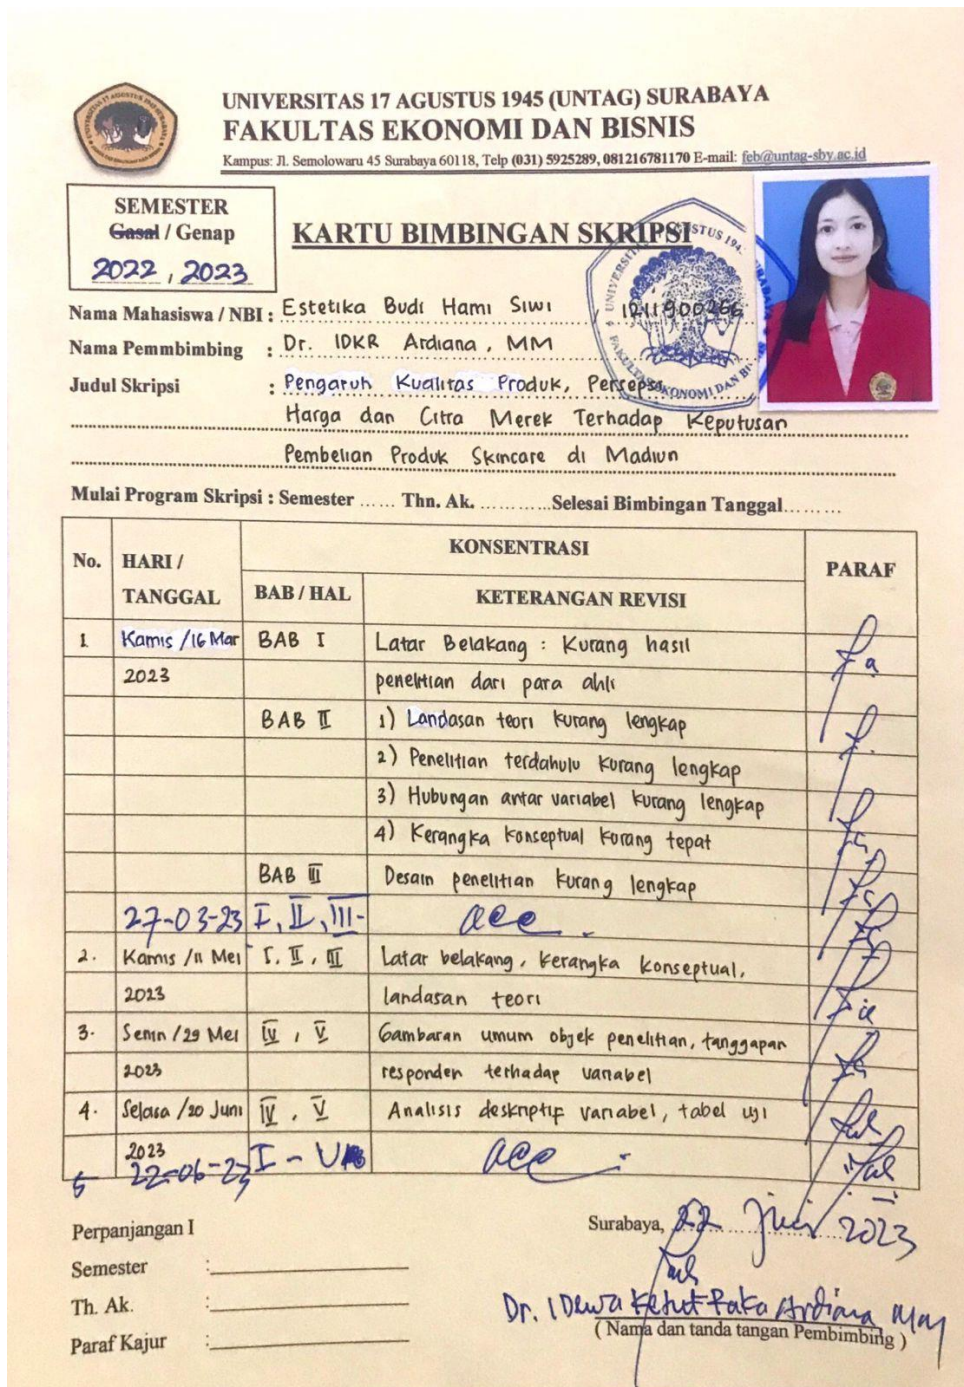 UNIVERSITAS 17 AGUSTUS 1945 (UNTAG) SURABAYA
FAKULTAS EKONOMI DAN BISNIS
Kampus: Jl. Semolowaru 45 Surabaya 60118, Telp (031) 5925289, 081216781170 E-mail: feb@untag-sby.ac.id
SEMESTER
Gasal / Genap
2022, 2023
KARTU BIMBINGAN SKRIPSI
Nama Mahasiswa / NBI : Estetika Budi Hami Siwi / 1211900266
Nama Pemmbimbing : Dr. IDKR Ardiana, MM
Judul Skripsi : Pengaruh Kualitas Produk, Persepsi
Harga dan Citra Merek Terhadap Keputusan
Pembelian Produk Skincare di Madiun
Mulai Program Skripsi : Semester ...... Thn. Ak. ............Selesai Bimbingan Tanggal.........
No. HARI / TANGGAL KONSENTRASI PARAF
BAB / HAL KETERANGAN REVISI
1. Kamis /16 Mar BAB I Latar Belakang : Kurang hasil
2023 penelitian dari para ahli
BAB II 1) Landasan teori kurang lengkap
2) Penelitian terdahulu kurang lengkap
3) Hubungan antar variabel kurang lengkap
4) Kerangka konseptual kurang tepat
BAB III Desain penelitian kurang lengkap
27-03-23 I, II, III- acc.
2. Kamis /11 Mei I, II, III Latar belakang, kerangka konseptual,
2023 landasan teori
3. Senin /29 Mei IV, V Gambaran umum objek penelitian, tanggapan
2023 responden terhadap variabel
4. Selasa /20 Juni IV, V Analisis deskriptif variabel, tabel uji
2023
5 22-06-23 I - V acc
Perpanjangan I
Semester :
Th. Ak. :
Paraf Kajur :
Surabaya, 22 Juni 2023
Dr. I Dewa Ketut Raka Ardiana, MM
( Nama dan tanda tangan Pembimbing )